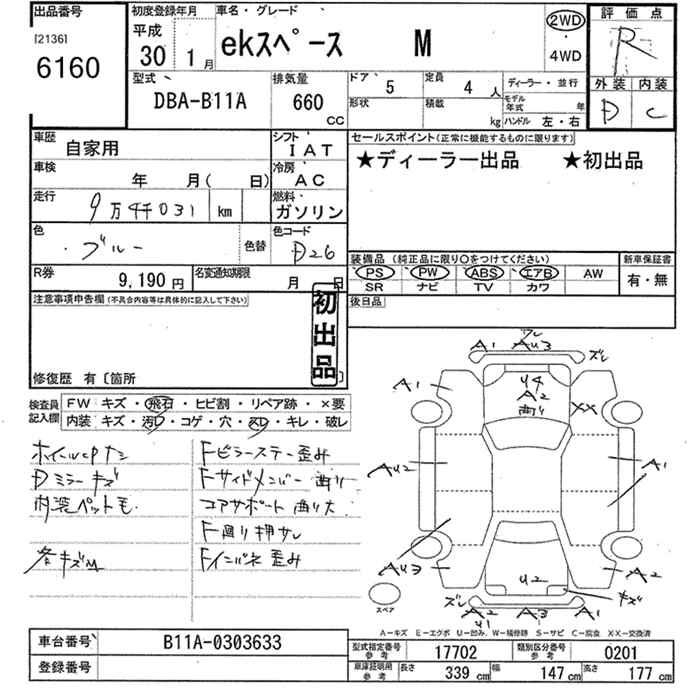 出品番号
[2136]
6160
初度登録年月
平成
30 1月
車名・グレード
ekスペース M
2WD
・
4WD
評価点
R
外装 内装
D C
型式
DBA-B11A
排気量
660
CC
ドア 5
定員 4人
ディーラー・並行
形状
積載 kg
モデル年式 年
ハンドル 左・右
車歴
自家用
シフト
IAT
車検
年 月( 日)
冷房
AC
走行
9万4千031 km
燃料
ガソリン
色
ブルー
色替
色コード
D26
R券
9,190円
名変通知期限
月 日
セールスポイント(正常に機能するものに限ります)
★ディーラー出品 ★初出品
装備品(純正品に限り〇をつけてください)
PS PW ABS エアB AW
SR ナビ TV カワ
新車保証書
有・無
後日品
注意事項申告欄(不具合内容等は具体的に記入して下さい)
初出品
修復歴 有〔箇所 〕
検査員記入欄
FW キズ・飛石・ヒビ割・リペア跡・×要
内装 キズ・汚れ・コゲ・穴・スレ・キレ・破レ
ホイールCPナシ
Dミラーキズ
内装ペット毛
各キズM
Fピラーステー歪み
Fサイドメンバー曲り
コアサポート曲り大
F廻り押サレ
Fインパネ歪み
ワレ
A1 AU3 ズレ
A1 U4 A2 曲り XX
AU2 A1
AU3 U2 A2
ズレ A2 A3 A1 キズ
U1
スペア
A-キズ E-エグボ U-凹み W-補修跡 S-サビ C-腐食 XX-交換済
車台番号
B11A-0303633
登録番号
型式指定番号 参考
17702
類別区分番号 参考
0201
車庫証明用 参考
長さ 339 cm
幅 147 cm
高さ 177 cm